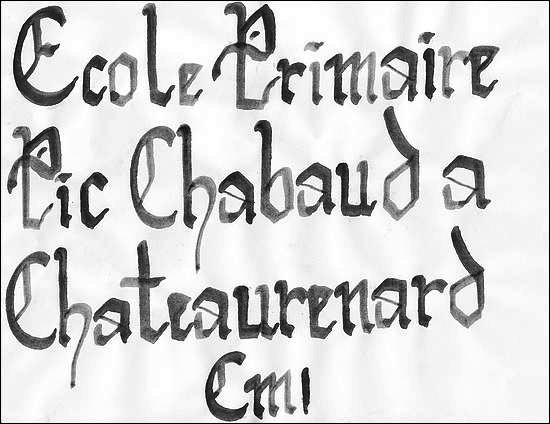 Ecole Primaire
Pic Chabaud a
Chateaurenard
Cm1